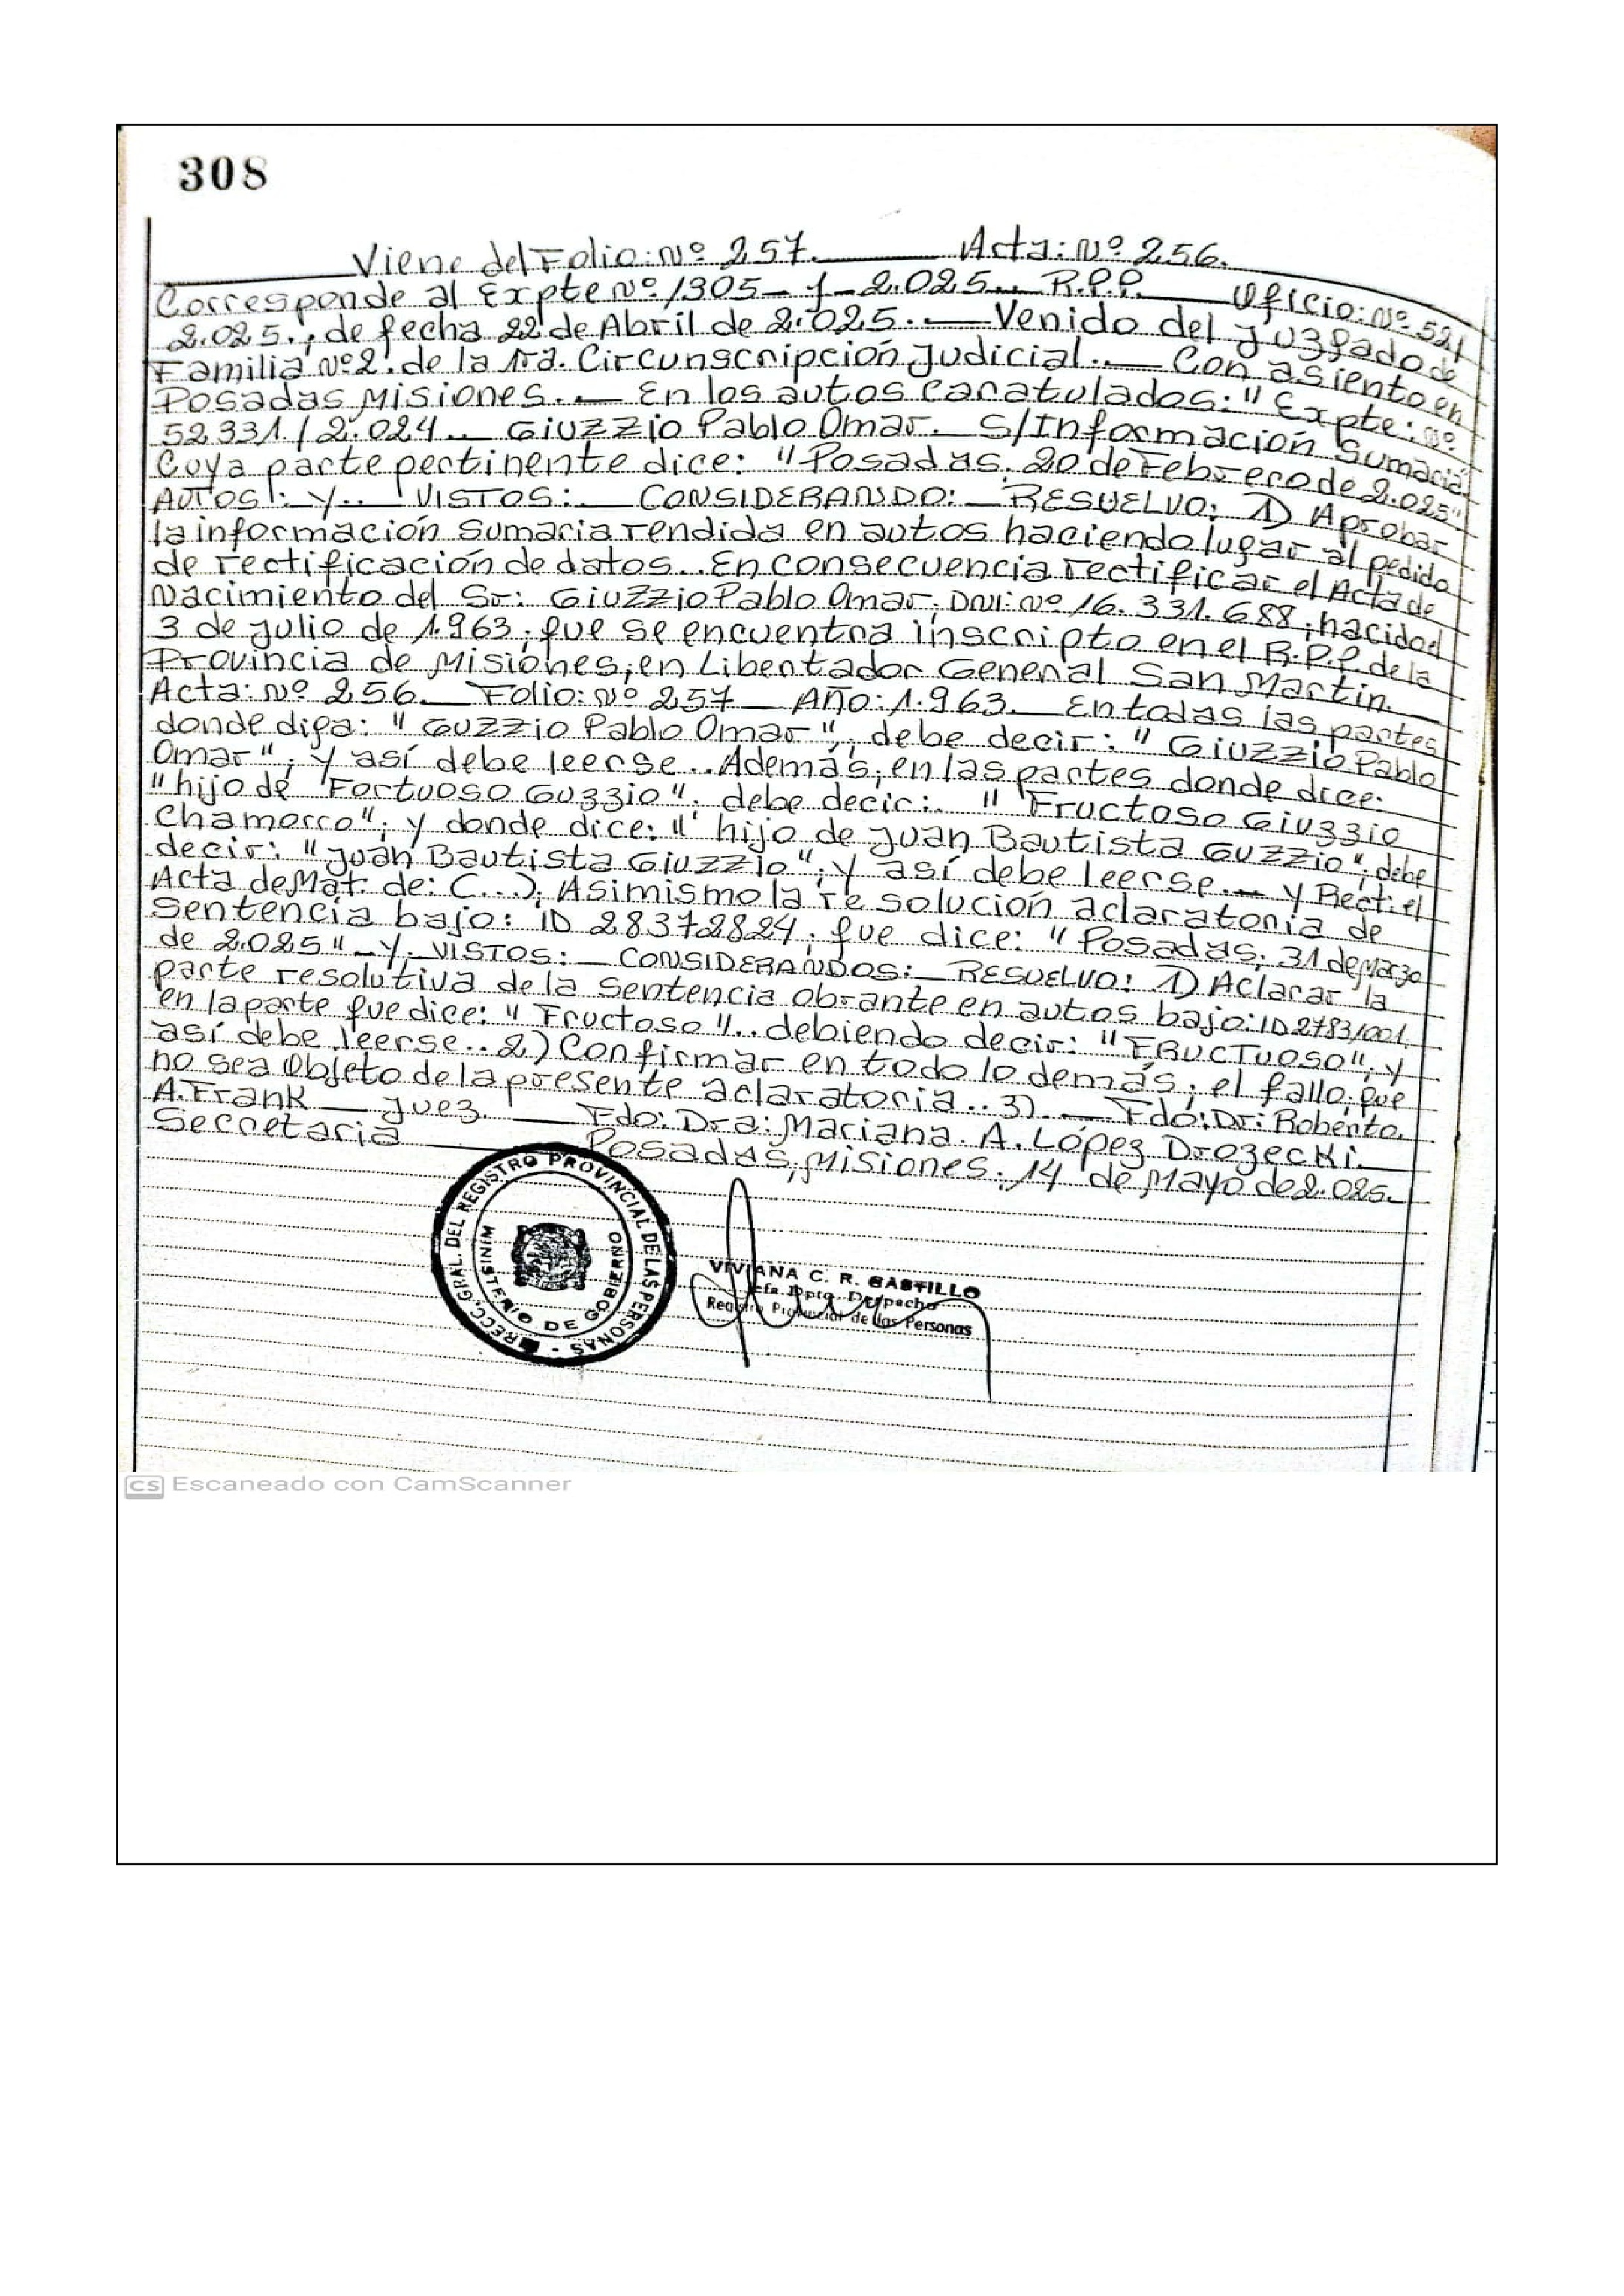 308
Viene del Folio: Nº 257. Acta: Nº 256.
Corresponde al Expte Nº 1305-Y-2.025.. R.P.P. Oficio: Nº 521/
2.025., de fecha 22 de Abril de 2.025.. Venido del Juzgado de
Familia Nº2. de la 1ra. Circunscripción Judicial.. Con asiento en
Posadas Misiones.. En los autos caratulados: "Expte: Nº
52331/2.024.. GiuZZio Pablo Omar. S/Información Sumaria
Cuya parte pertinente dice: "Posadas, 20 de Febrero de 2.025"
AUTOS: Y.. VISTOS: CONSIDERANDO: RESUELVO: 1) Aprobar
la información sumaria rendida en autos haciendo lugar al pedido
de rectificación de datos.. En consecuencia rectificar el Acta de
Nacimiento del Sr: GiuZZio Pablo Omar, DNI: Nº 16.331.688, nacido el
3 de Julio de 1.963, que se encuentra inscripto en el R.P.P. de la
Provincia de Misiones, en Libertador General San Martín.
Acta: Nº 256. Folio: Nº 257 Año: 1.963. En todas las partes
donde diga: "GuZZio Pablo Omar", debe decir: "GiuZZio Pablo
Omar", y así debe leerse.. Además, en las partes donde dice:
"hijo de Fortuoso Guzzio". debe decir: "Fructoso Giuzzio
Chamorro", y donde dice: "hijo de Juan Bautista GuZZio", debe
decir: "Juan Bautista GiuZZio", y así debe leerse.. Y Rect. el
Acta de Mat. de: (...). Asimismo la resolución aclaratoria de
Sentencia bajo: ID 28372824, que dice: "Posadas, 31 de Marzo
de 2.025" Y VISTOS: CONSIDERANDOS: RESUELVO: 1) Aclarar la
parte resolutiva de la Sentencia obrante en autos bajo: ID
en la parte que dice: "Fructoso".. debiendo decir: "FRUCTUOSO", y
así debe leerse.. 2) Confirmar en todo lo demás, el fallo, que
no sea objeto de la presente aclaratoria.. 3). Fdo: Dr: Roberto
A. Frank Juez Fdo: Dra: Mariana. A. López Drozecki.
Secretaria Posadas, Misiones, 14 de Mayo de 2.025.
RECC. GRAL. DEL REGISTRO PROVINCIAL DE LAS PERSONAS
MINISTERIO DE GOBIERNO
VIVIANA C. R. CASTILLO
Jefa Dpto. Despacho
Registro Provincial de las Personas
CS Escaneado con CamScanner